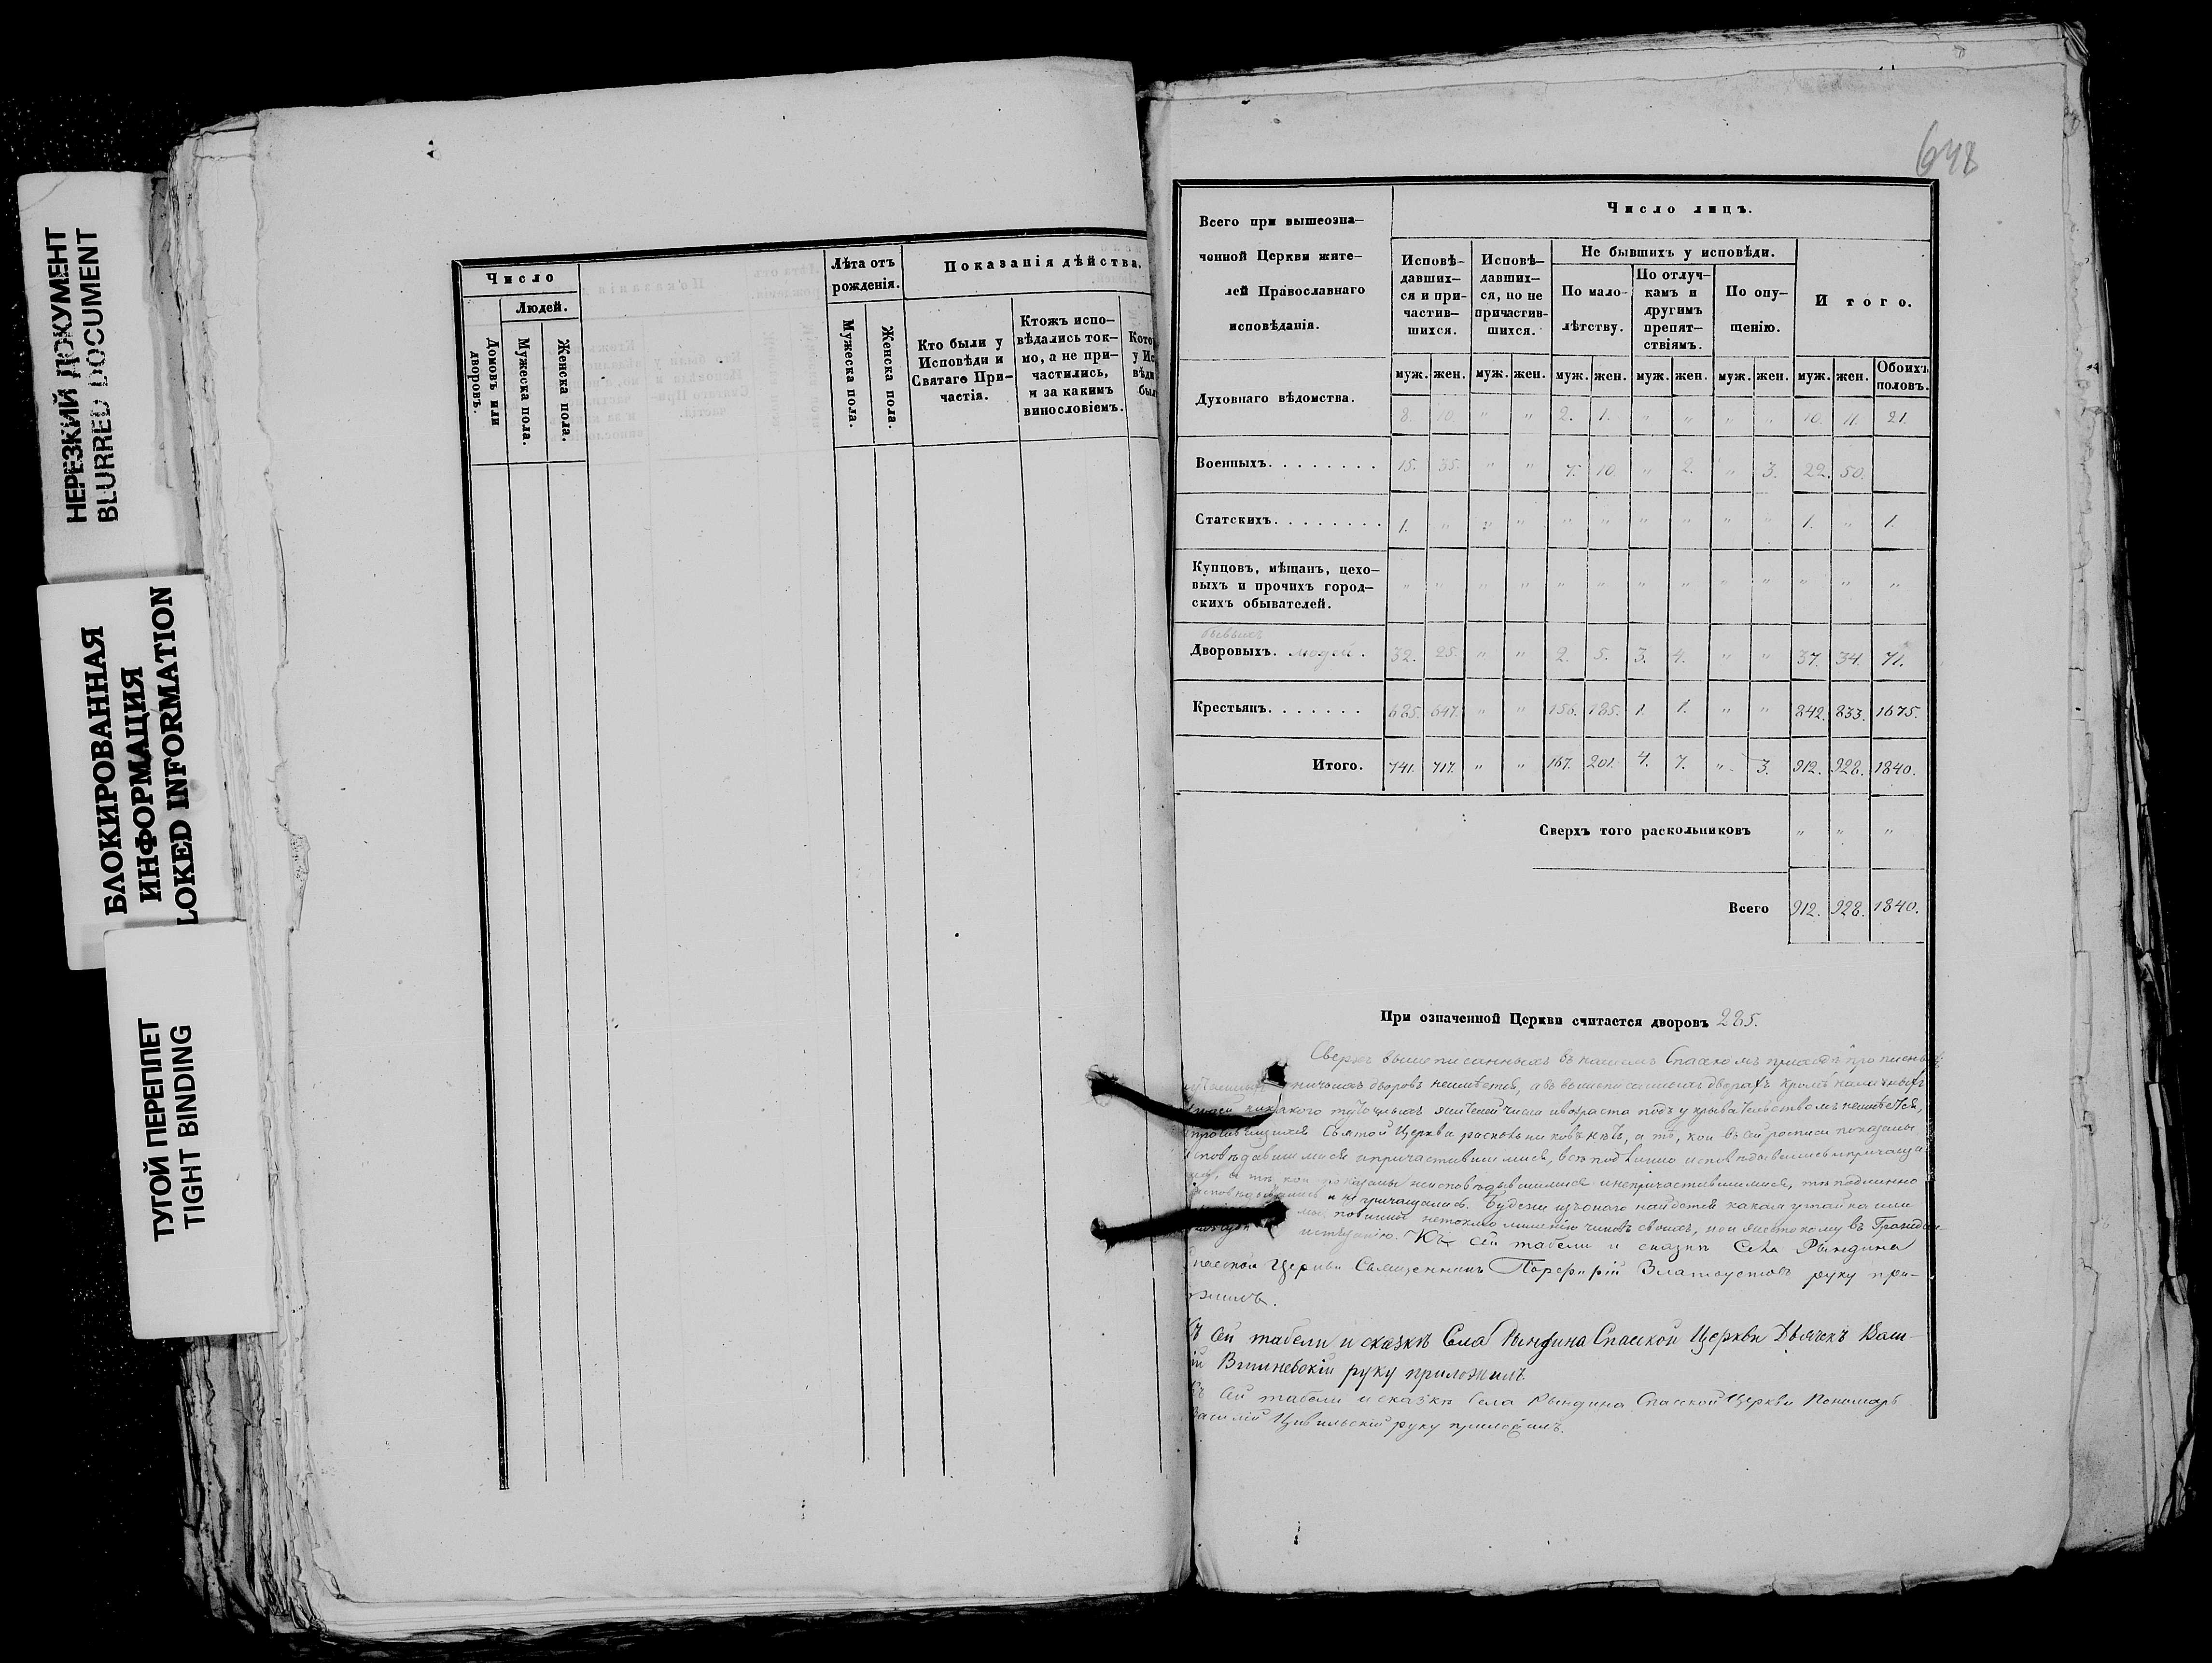 НЕРЕЗКИЙ ДОКУМЕНТ
BLURRED DOCUMENT
БЛОКИРОВАННАЯ
ИНФОРМАЦИЯ
LOKED INFORMATION
ТУГОЙ ПЕРЕПЛЕТ
TIGHT BINDING
Число
Людей.
Домовъ или дворовъ.
Мужеска пола.
Женска пола.
Лѣта отъ рожденія.
Мужеска пола.
Женска пола.
Показанія дѣйства.
Кто были у Исповѣди и Святаго Причастія.
Ктожъ исповѣдались токмо, а не причастились, и за какимъ винословіемъ.
648
Всего при вышеозна-
ченной Церкви жите-
лей Православнаго
исповѣданія.
Число лицъ.
Исповѣ-
давших-
ся и при-
частив-
шихся.
Исповѣ-
давших-
ся, но не
причастив-
шихся.
Не бывшихъ у исповѣди.
По мало-
лѣтству.
По отлуч-
камъ и
другимъ
препят-
ствіямъ.
По опу-
щенію.
Итого.
муж. жен. муж. жен. муж. жен. муж. жен. муж. жен. муж. жен. Обоихъ половъ.
Духовнаго вѣдомства. 8. 10. " " 2. 1. " " " " 10. 11. 21.
Военныхъ. . . . . . . . 15. 35. " " 7. 10. " 2. " 3. 22. 50.
Статскихъ. . . . . . . . 1. " " " " " " " " " 1. " 1.
Купцовъ, мѣщанъ, цехо-
выхъ и прочихъ город-
скихъ обывателей. " " " " " " " " " " " " "
бывшихъ
Дворовыхъ. людей. 32. 25. " " 2. 5. 3. 4. " " 37. 34. 71.
Крестьянъ. . . . . . . 685. 647. " " 156. 185. 1. 1. " " 842. 833. 1675.
Итого. 741. 717. " " 167. 201. 4. 7. " 3. 912. 928. 1840.
Сверхъ того раскольниковъ " " "
Всего 912. 928. 1840.
При означенной Церкви считается дворовъ 285.
Сверхъ вышеписанныхъ въ нашемъ Спаскомъ приходѣ
дворовъ неимѣется, а въ вышеписанныхъ дворахъ кромѣ
числа и возраста подъ укрывательствомъ неимѣется,
Святой Церкви раскольниковъ нѣтъ, а тѣ, кои въ сей росписи показаны
исповѣдавшимися и причастившимися, всѣ подлинно исповѣдывались и
а тѣ кои показаны неисповѣдывшимися и непричастившимися, тѣ подлинно
и не причащались. Будежи изъ онаго найдется какая утайка или
повинны нетокмо лишенію чиновъ своихъ, но и жестокому въ
истязанію. Къ сей табели и сказкѣ Села Рындина
Церкви Священникъ Порфирій Златоустовъ руку при-
ложилъ.
Къ сей табели и сказкѣ Села Рындина Спаской Церкви Дьячекъ
Вишневскій руку приложилъ
Къ сей табели и сказкѣ Села Рындина Спаской Церкви Пономарь
Василій Цивильскій руку приложилъ.